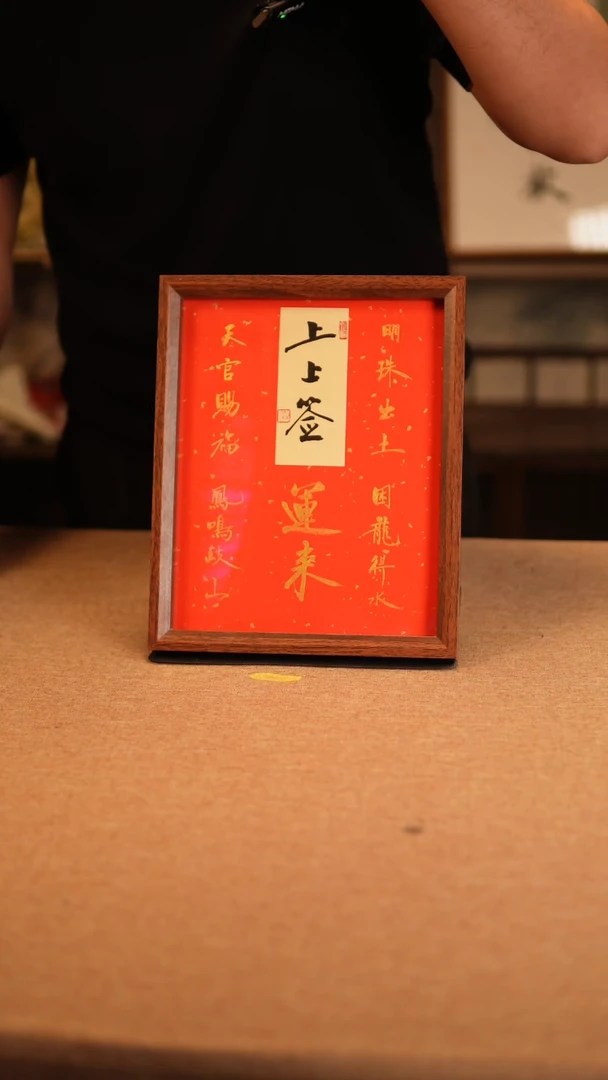 明珠出土 困龍得水
上上签
運来
天官賜福 鳳鳴岐山